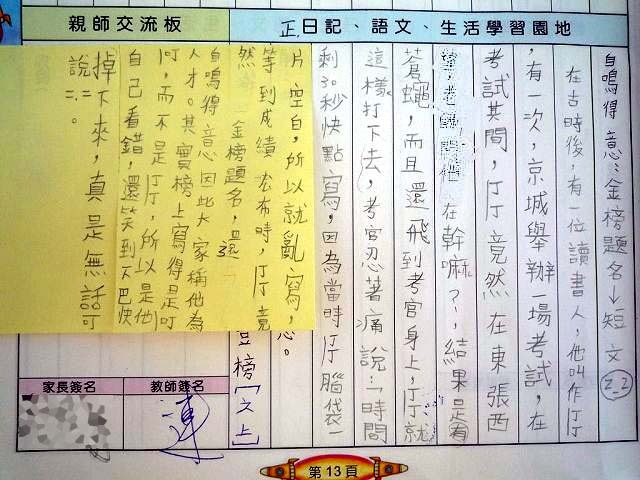 親師交流板
正.日記、語文、生活學習園地
自鳴得意:金榜題名→短文 2-2
在古時後,有一位讀書人,他叫作丁丁
,有一次,京城舉辦一場考試,在
考試其間,丁丁竟然在東張西
望,考官問他在幹嘛?,結果是有
蒼蠅,而且還飛到考官身上,丁丁就
這樣打下去,考官忍著痛說:「時間
剩30秒快點寫,因為當時丁丁腦袋一
片空白,所以就亂寫,
等到成績公布時,丁丁竟
然金榜題名,還
自鳴得意因此大家稱他為
人才。其實榜上寫得是叮
叮,而不是丁丁,所以是他
自己看錯,還笑到下巴快
掉下來,真是無話可
說=.=。
登榜「文上」
家長簽名
教師簽名
第13頁